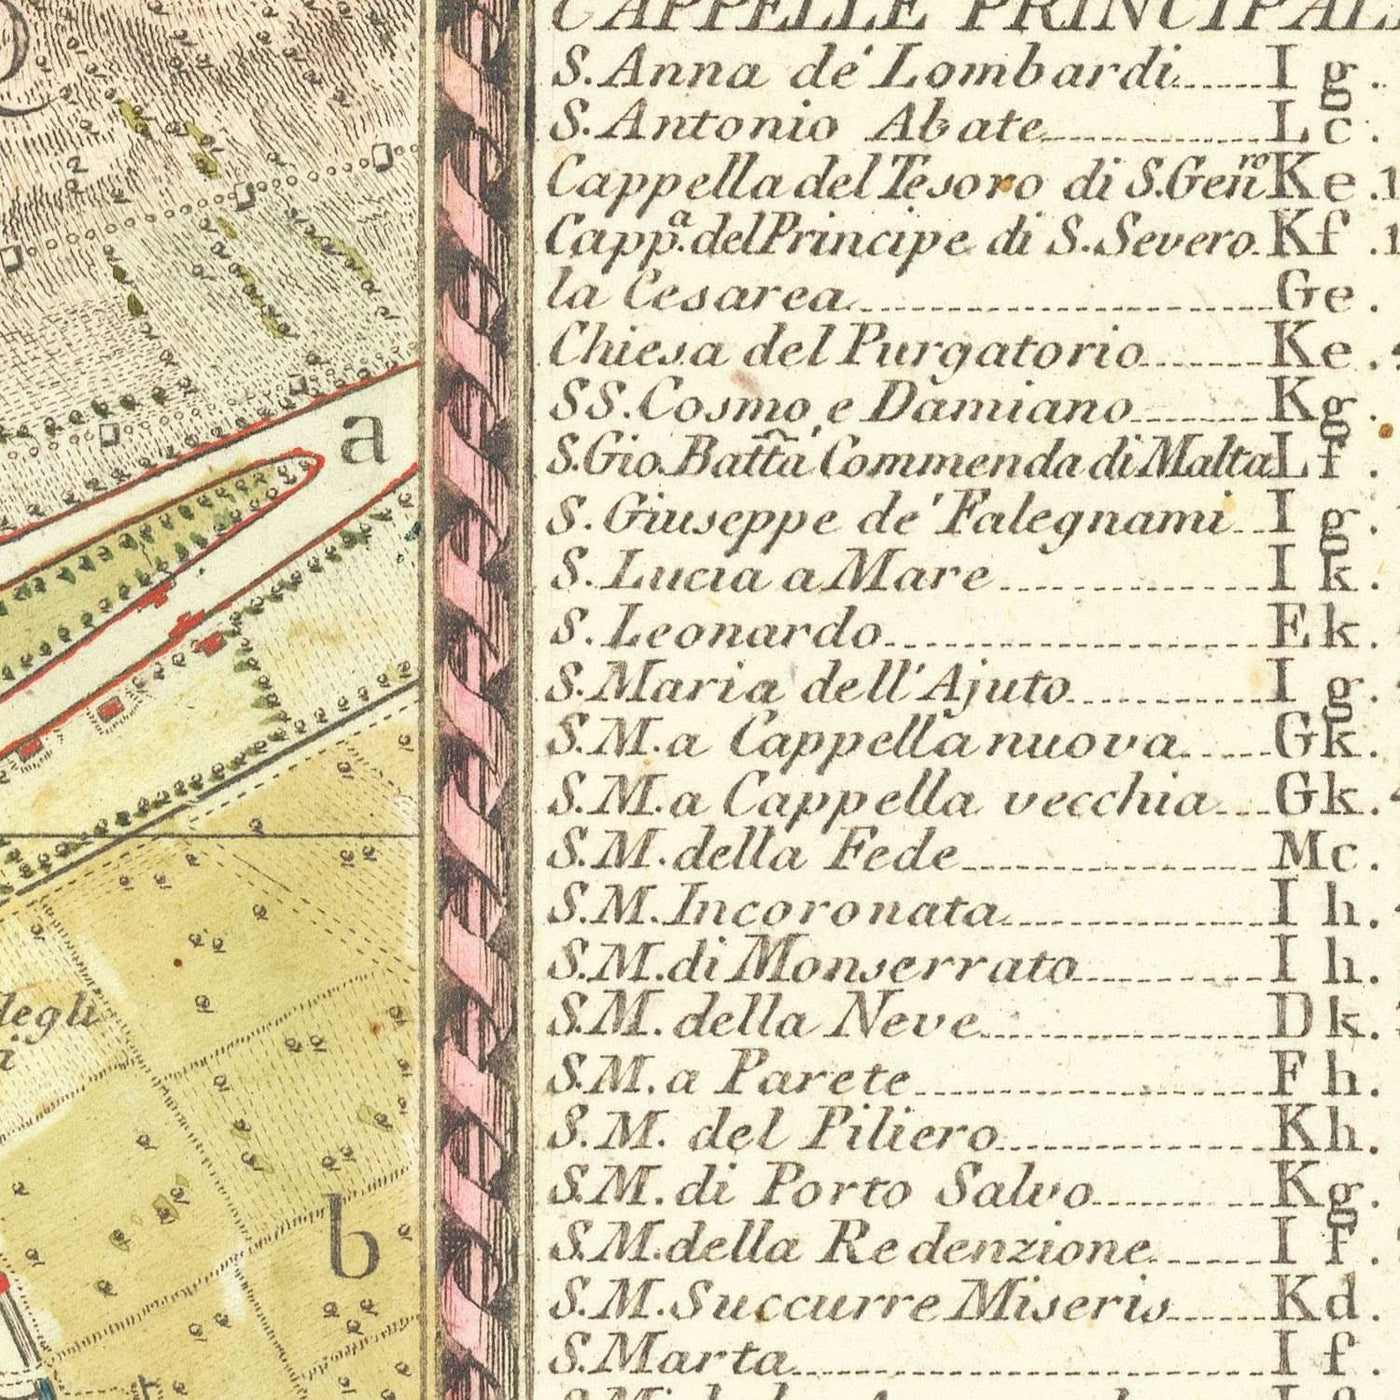 a
degli
b
CAPPELLE PRINCIPAL
S. Anna de' Lombardi I g.
S. Antonio Abate L c.
Cappella del Tesoro di S. Gen.ro K e. 1
Capp.a del Principe di S. Severo K f. 1
la Cesarea G e.
Chiesa del Purgatorio K e.
SS. Cosmo, e Damiano K g.
S. Gio. Batta Commenda di Malta L f.
S. Giuseppe de' Falegnami I g.
S. Lucia a Mare I k.
S. Leonardo E k.
S. Maria dell' Ajuto I g.
S. M. a Cappella nuova G k.
S. M. a Cappella vecchia G k.
S. M. della Fede M c.
S. M. Incoronata I h.
S. M. di Monserrato I h.
S. M. della Neve D k.
S. M. a Parete F h.
S. M. del Piliero K h.
S. M. di Porto Salvo K g.
S. M. della Redenzione I f.
S. M. Succurre Miseris K d.
S. Marta I f.